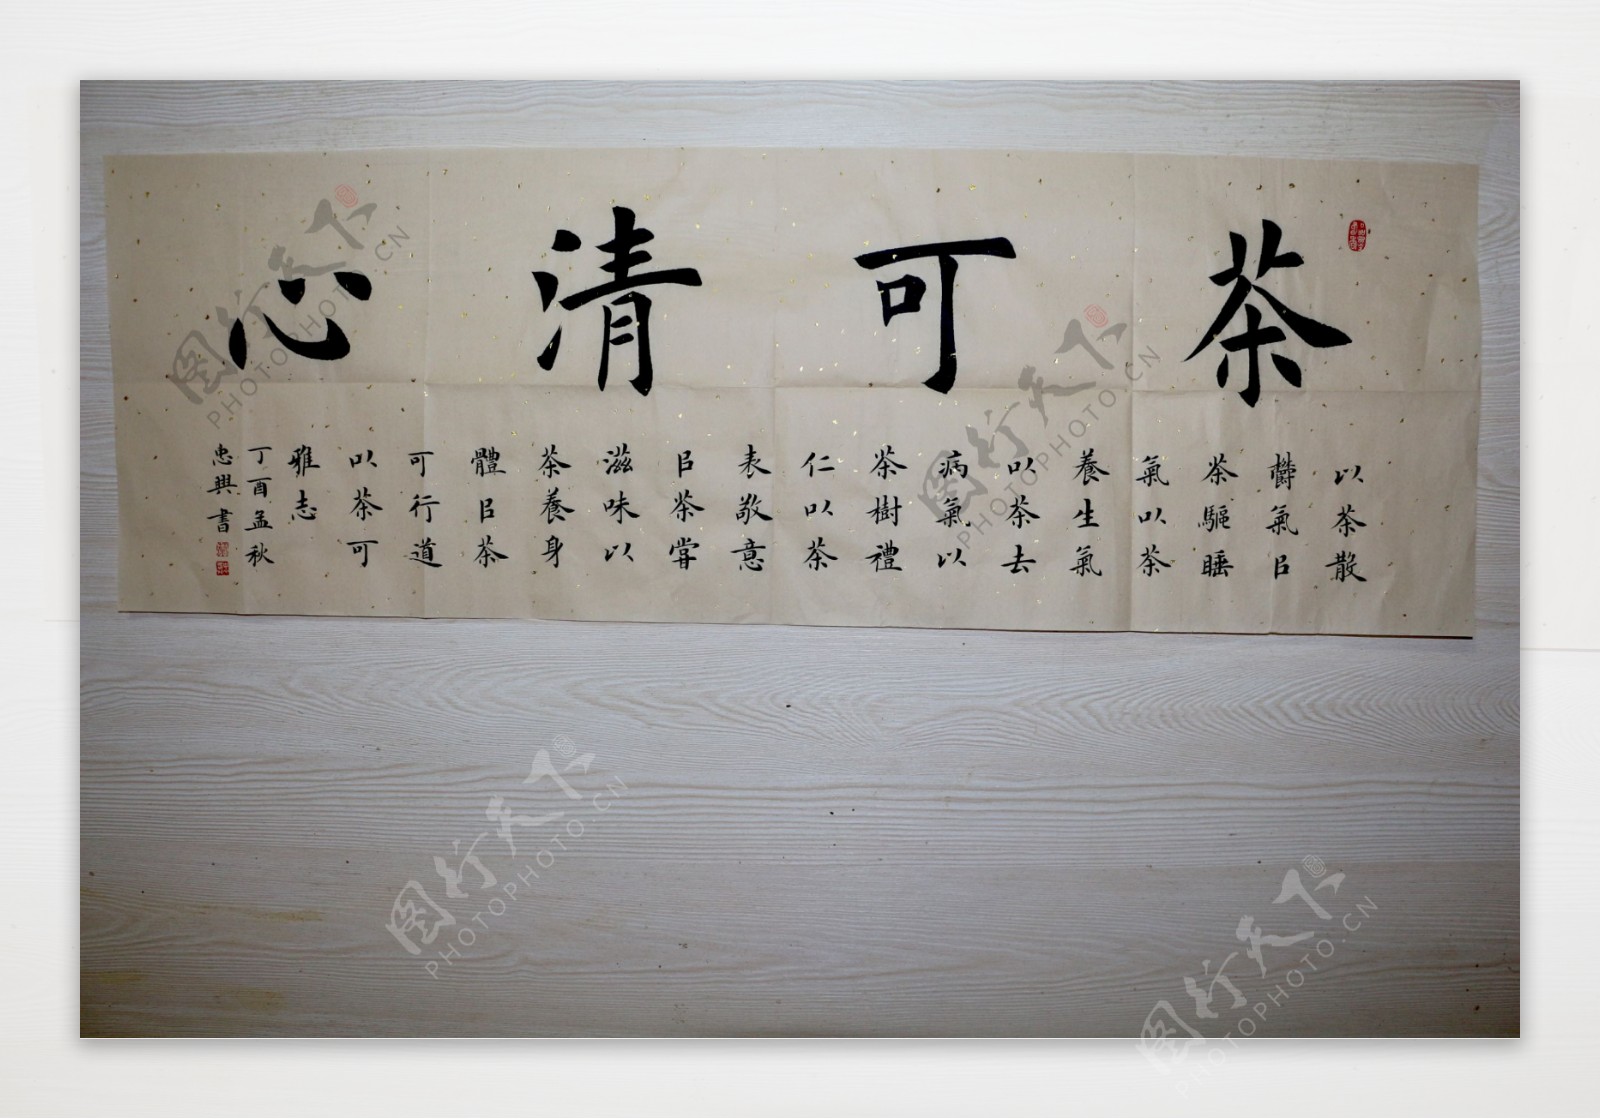 茶可清心
以茶散
欝氣㠯
茶驅睡
氣以茶
養生氣
以茶去
病氣以
茶樹禮
仁以茶
表敬意
㠯茶甞
滋味以
茶養身
體㠯茶
可行道
以茶可
雅志
丁酉孟秋
忠興書
图行天下
PHOTOPHOTO.CN
图行天下
PHOTOPHOTO.CN
图行天下
PHOTOPHOTO.CN
图行天下
PHOTOPHOTO.CN